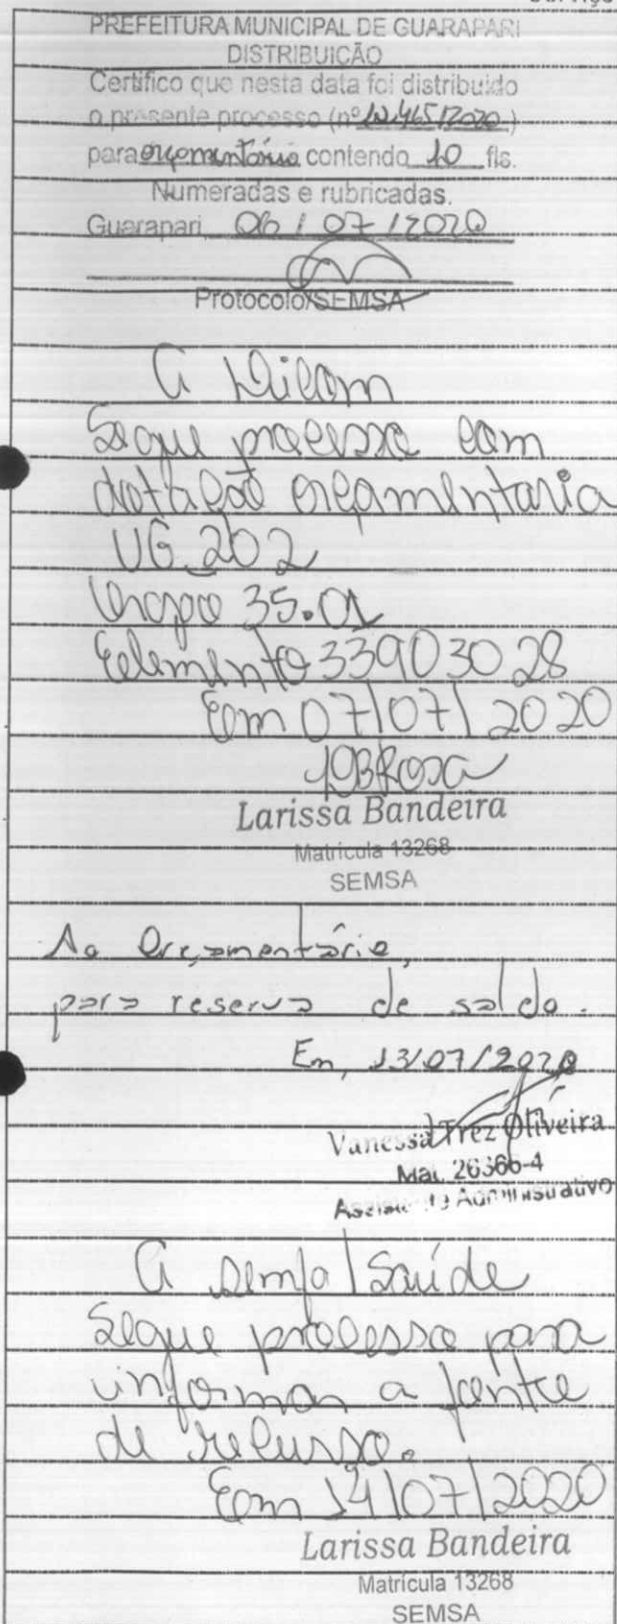 PREFEITURA MUNICIPAL DE GUARAPARI
DISTRIBUIÇÃO
Certifico que nesta data foi distribuido
o presente processo (nº 12.465/2020)
para orçamentária contendo 10 fls.
Numeradas e rubricadas.
Guarapari, 06 / 07 / 2020
Protocolo/SEMSA
A
Segue processo com
dotação orçamentaria
UG 202
35.01
Elemento 33903028
Em 07/07/2020
LBRosa
Larissa Bandeira
Matrícula 13268
SEMSA
Ao Orçamentário,
para reserva de saldo.
Em, 13/07/2020
Vanessa Trez Oliveira
Mat. 26366-4
A Semfa/Saúde
Segue processo para
informar a fonte
de recurso.
Em 14/07/2020
Larissa Bandeira
Matrícula 13268
SEMSA